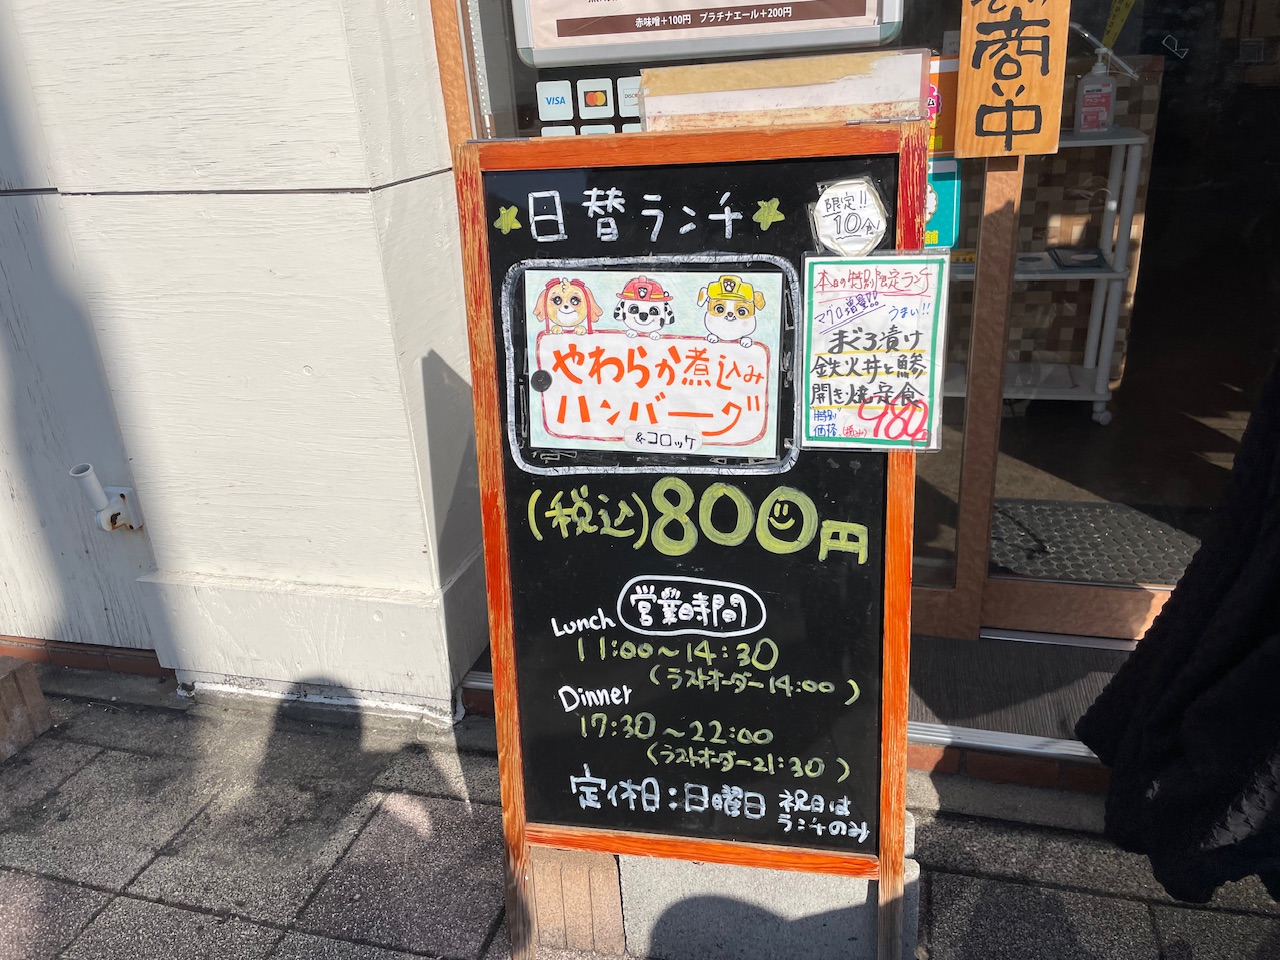 赤味噌+100円 プラチナエール+200円
VISA
商い中
日替ランチ
限定!!
10食
やわらか煮込み
ハンバーグ
&コロッケ
本日の特別限定ランチ
マグロ増量!! うまい!!
まぐろ漬け
鉄火丼と鯵
開き焼定食
特別
価格 (税込) 980
(税込)800円
営業時間
Lunch
11:00~14:30
(ラストオーダー14:00)
Dinner
17:30~22:00
(ラストオーダー21:30)
定休日:日曜日 祝日は
ランチのみ